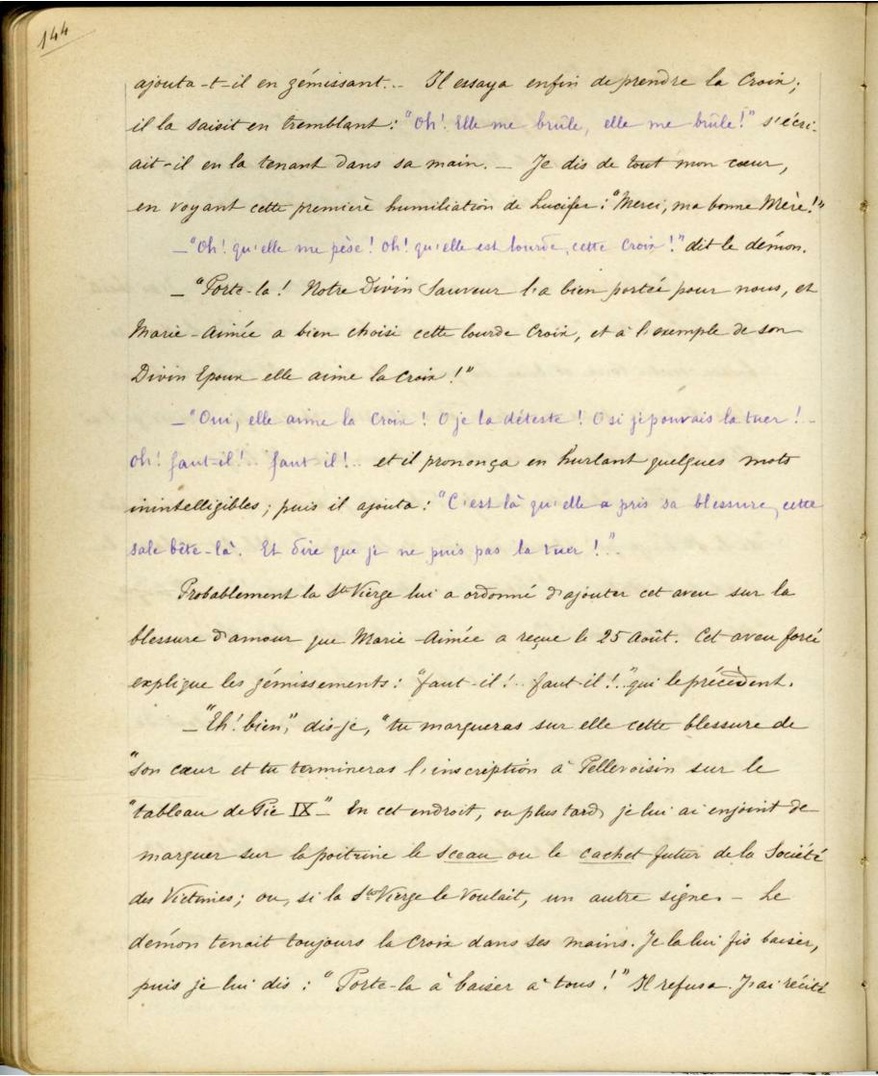 144
ajouta-t-il en gémissant... Il essaya enfin de prendre la Croix;
il la saisit en tremblant: "Oh! Elle me brûle, elle me brûle!" s'écri-
ait-il en la tenant dans sa main. — Je dis de tout mon cœur,
en voyant cette première humiliation de Lucifer: "Merci, ma bonne Mère!"
— "Oh! qu'elle me pèse! Oh! qu'elle est lourde, cette Croix!" dit le démon.
— "Porte-la! Notre Divin Sauveur l'a bien portée pour nous, et
Marie-Aimée a bien choisi cette lourde Croix, et à l'exemple de son
Divin Epoux elle aime la Croix!"
— "Oui, elle aime la Croix! O je la déteste! O si je pouvais la tuer!..
Oh! faut-il!.. faut il!.. et il prononça en hurlant quelques mots
inintelligibles; puis il ajouta: "C'est là qu'elle a pris sa blessure, cette
sale bête-là. Et dire que je ne puis pas la tuer!"..
Probablement la Ste Vierge lui a ordonné d'ajouter cet aveu sur la
blessure d'amour que Marie-Aimée a reçue le 25 Août. Cet aveu forcé
explique les gémissements: "faut-il!.. faut-il!.." qui le précèdent.
— "Eh! bien," dis-je, "tu marqueras sur elle cette blessure de
"son cœur et tu termineras l'inscription à Pellevoisin sur le
"tableau de Pie IX" — En cet endroit, ou plus tard, je lui ai enjoint de
marquer sur la poitrine le sceau ou le cachet futur de la Société
des Victimes; ou, si la Ste Vierge le voulait, un autre signe. — Le
démon tenait toujours la Croix dans ses mains. Je la lui fis baiser,
puis je lui dis: "Porte-la à baiser à tous!" Il refusa. J'ai récité